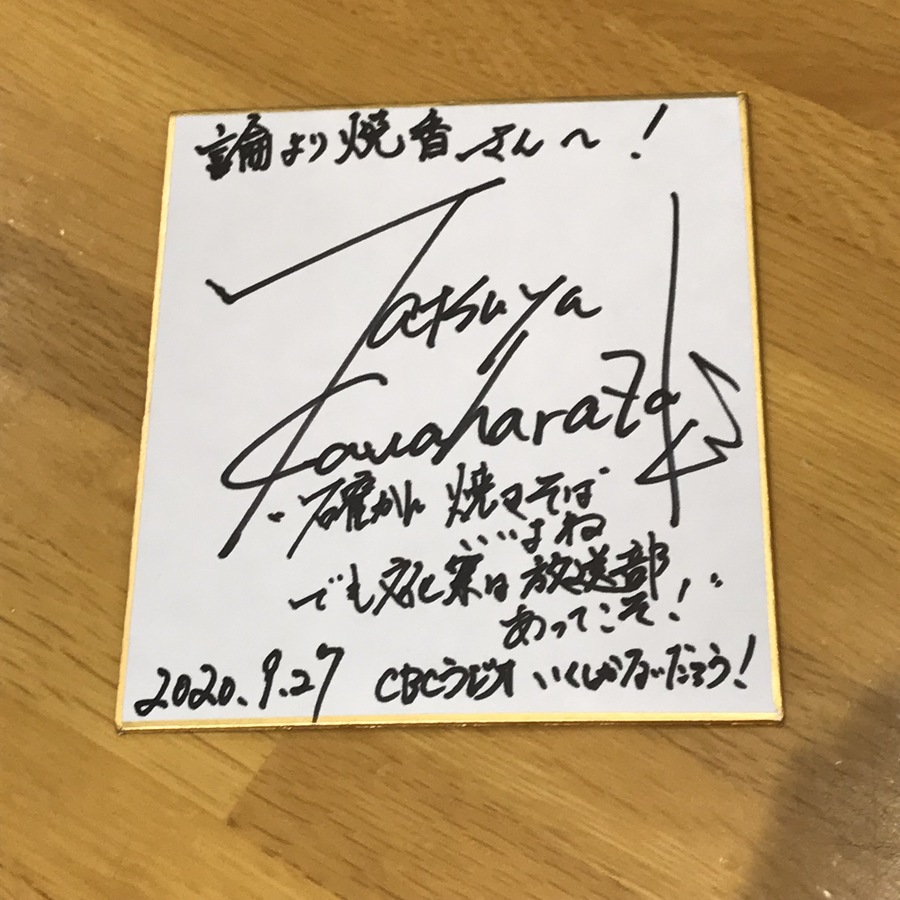 論より焼香さんへ!
Tatsuya
Kawaharada
"確かに 焼きそば
いいよね
でも文化祭は放送部
あってこそ!"
2020.9.27 CBCラジオ いくしかないだろう!